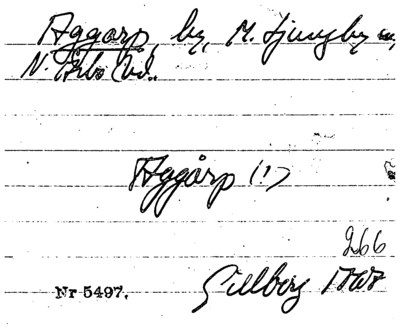 Aggarp, by, M. Ljungby sn,
N. Åsbo hd.
Aggårp (!)
266
Gillberg 1767
Nr 5497.